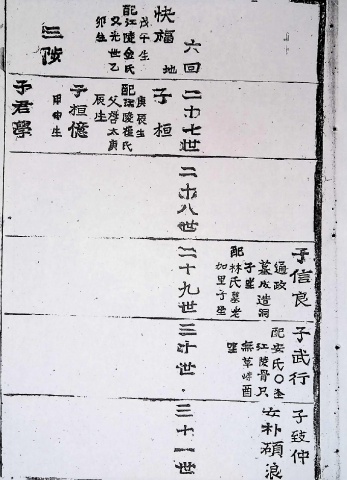 子信良
通政
墓戍造洞
子坐
配
林氏墓老
加里子坐
子武行
配安氏〇坐
江陵骨只
無草峙酉
坐
子致仲
女朴碩浪
六回
二十七世
二十八世
二十九世
三十世
三十一世
快福
地
戊午生
配江陵金氏
父光世乙
卯生
子桓
庚辰生
父啓太庚
辰生
三陔
子桓億
甲申生
子君學